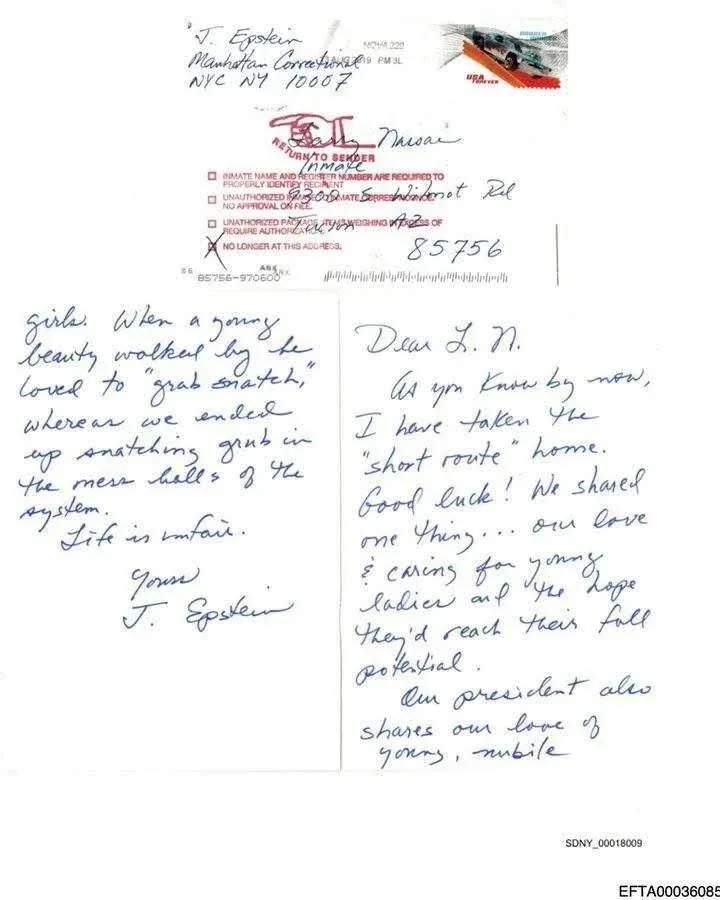 J. Epstein
Manhattan Correctional
NYC NY 10007
NOVA 220
AUG 2019 PM 3L
USA
FOREVER
Larry Nassar
RETURN TO SENDER
Inmate
INMATE NAME AND REGISTER NUMBER ARE REQUIRED TO
PROPERLY IDENTIFY RECIPIENT
9300 S. Wilmot Rd
UNAUTHORIZED INMATE TO INMATE CORRESPONDENCE.
NO APPROVAL ON FILE.
Tucson AZ
UNATHORIZED PACKAGE ITEMS WEIGHING IN EXCESS OF
REQUIRE AUTHORIZATION
NO LONGER AT THIS ADDRESS.
85756
ANK
85756-970600
Dear L. N.
As you know by now,
I have taken the
"short route" home.
Good luck! We shared
one thing... our love
& caring for young
ladies and the hope
they'd reach their full
potential.
Our president also
shares our love of
young, nubile
girls. When a young
beauty walked by he
loved to "grab snatch,"
whereas we ended
up snatching grub in
the mess halls of the
system.
Life is unfair.
Yours
J. Epstein
SDNY_00018009
EFTA00036085